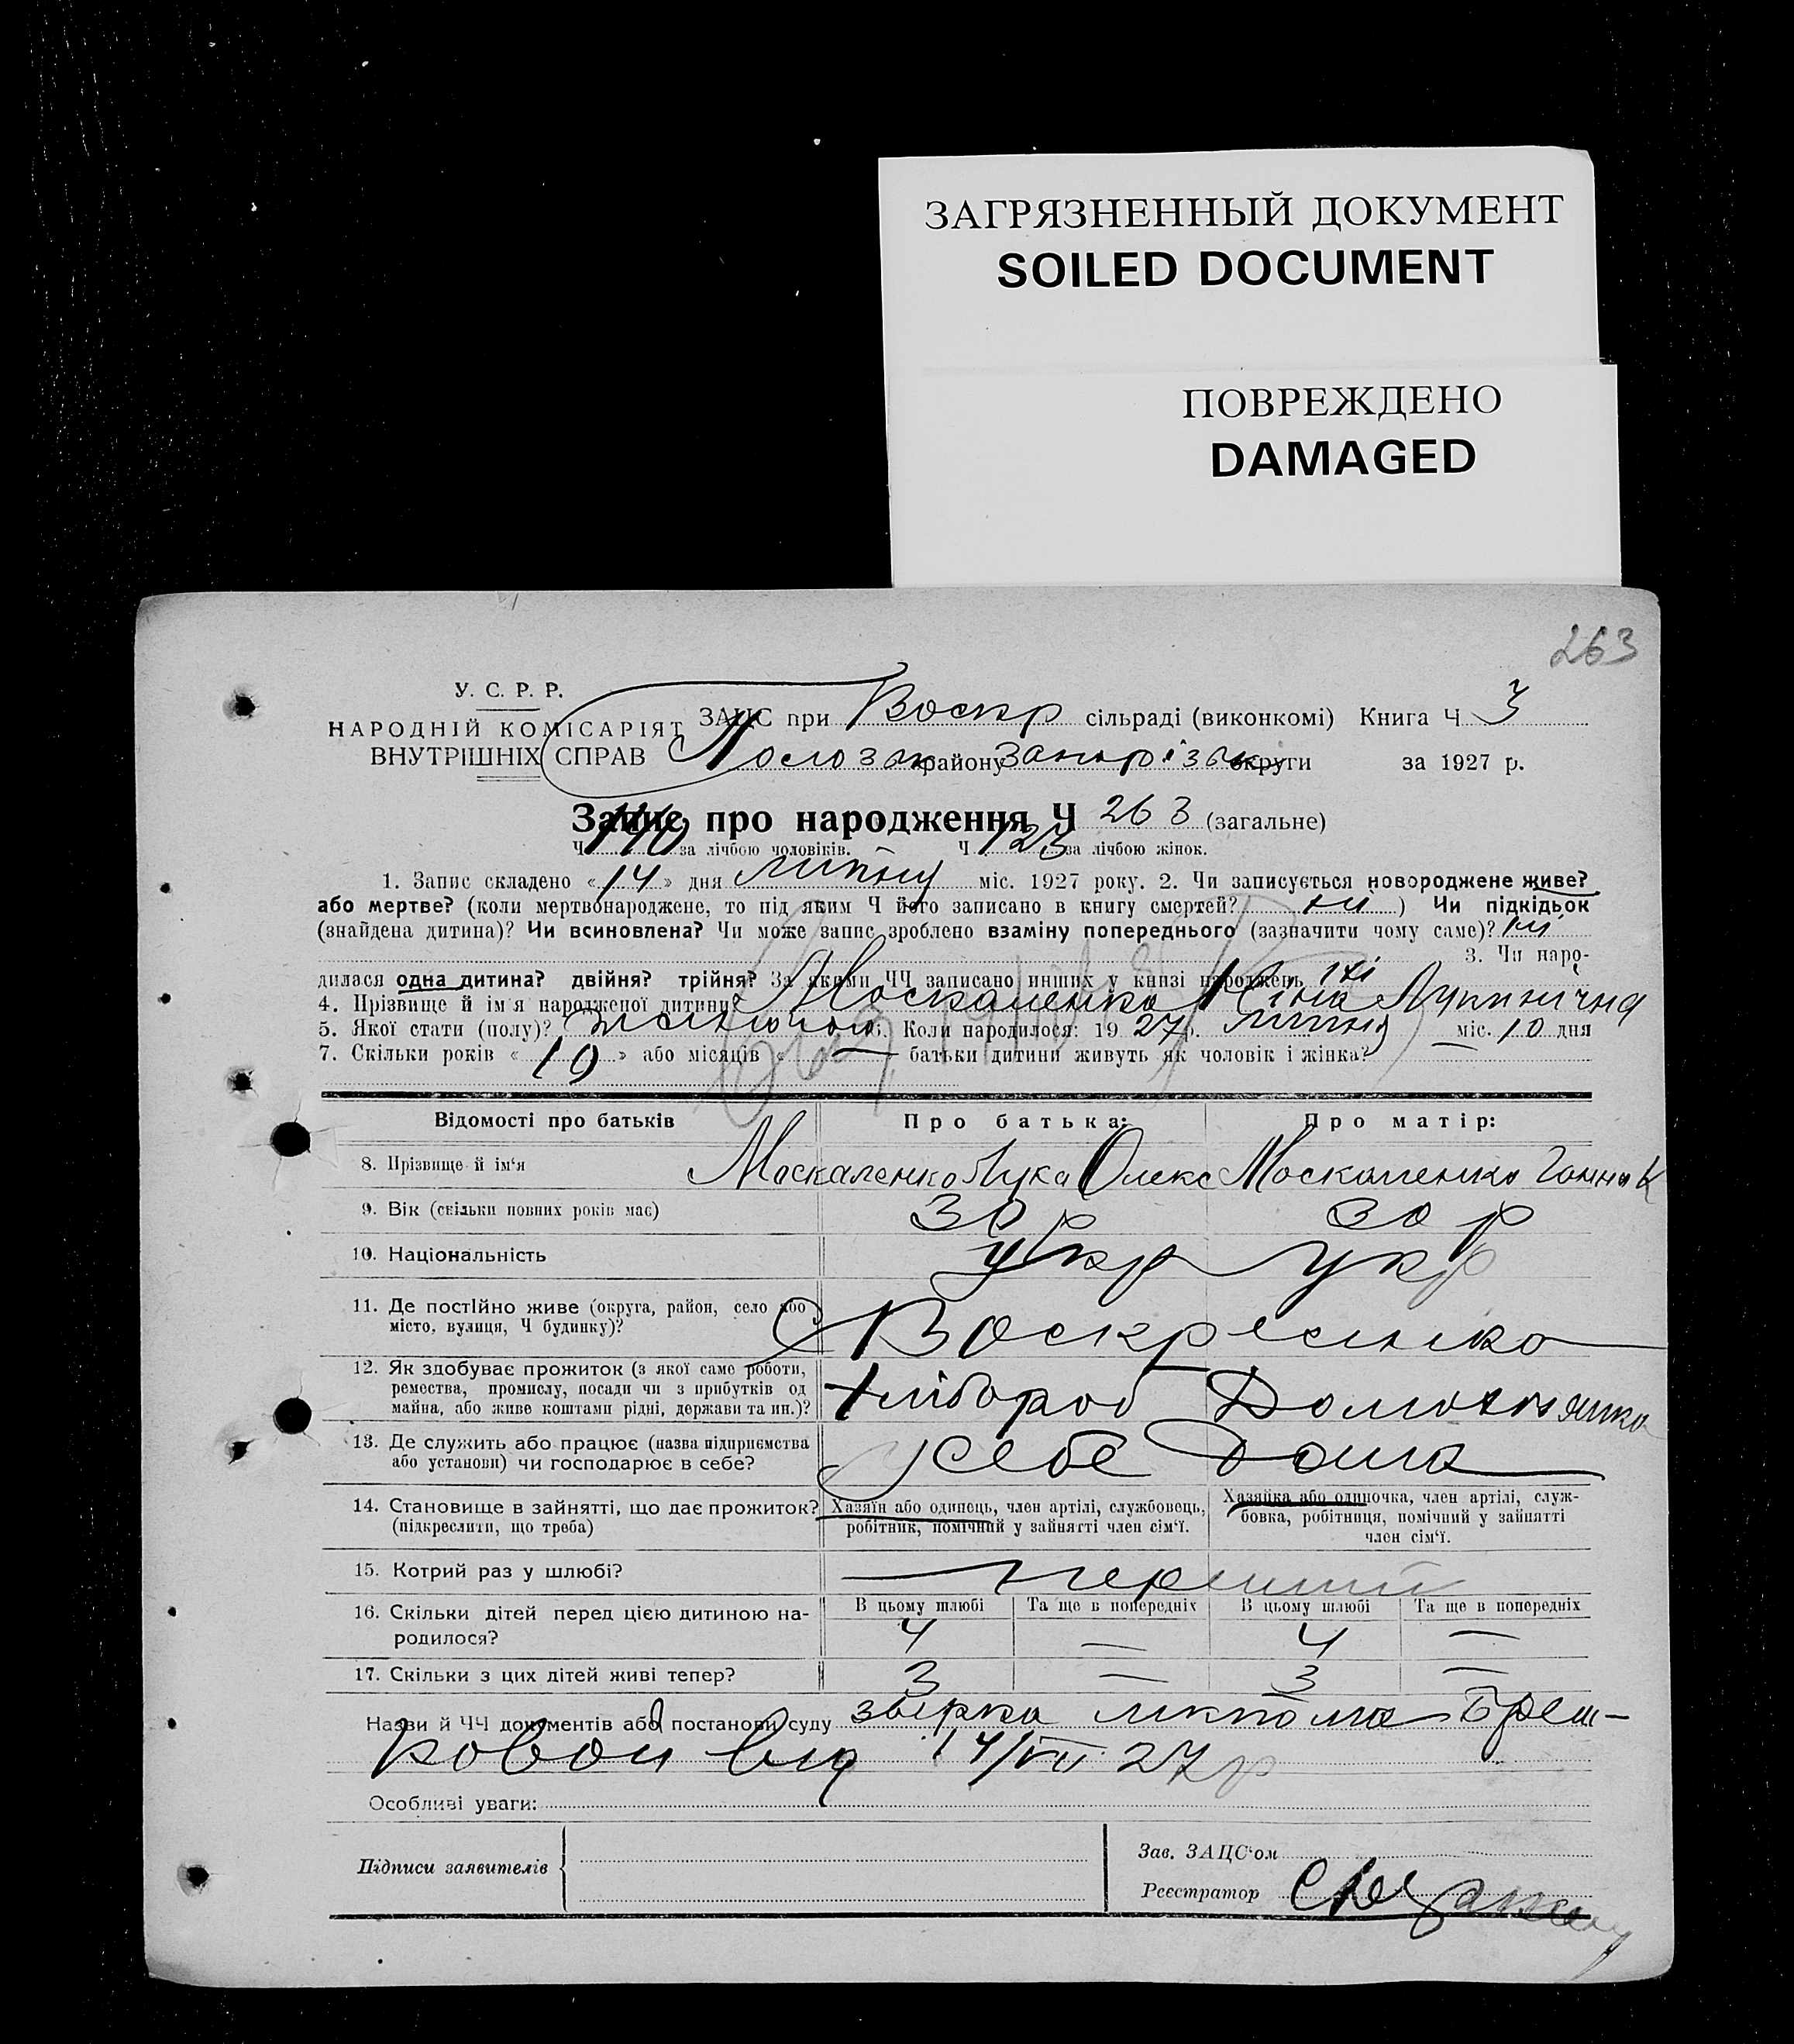 ЗАГРЯЗНЕННЫЙ ДОКУМЕНТ
SOILED DOCUMENT
ПОВРЕЖДЕНО
DAMAGED
263
У. С. Р. Р.
НАРОДНІЙ КОМІСАРІЯТ
ВНУТРІШНІХ СПРАВ
ЗАЦС при Воскр сільраді (виконкомі) Книга Ч 3
Полозьк району Запорізьк округи за 1927 р.
Запис про народження Ч 263 (загальне)
Ч 140 за лічбою чоловіків. Ч 123 за лічбою жінок.
1. Запис складено «14» дня липня міс. 1927 року. 2. Чи записується новороджене живе?
або мертве? (коли мертвонароджене, то під яким Ч його записано в книгу смертей? ні ) Чи підкідьок
(знайдена дитина)? Чи всиновлена? Чи може запис зроблено взаміну попереднього (зазначити чому саме)? ні
3. Чи наро-
дилася одна дитина? двійня? трійня? За якими ЧЧ записано инших у книзі народжень ні
4. Прізвище й ім'я народженої дитини? Москаленко Лукинична
5. Якої стати (полу)? жіночой. Коли народилося: 1927р. липня міс. 10 дня
7. Скільки років «10» або місяців «—» батьки дитини живуть як чоловік і жінка?
Відомості про батьків Про батька: Про матір:
8. Прізвище й ім'я Москаленко Лука Олекс Москаленко Ганна К
9. Вік (скільки повних років має) 30 р 30 р
10. Національність укр укр
11. Де постійно живе (округа, район, село або
місто, вулиця, Ч будинку)? Воскресенка
12. Як здобуває прожиток (з якої саме роботи,
ремества, промислу, посади чи з прибутків од
майна, або живе коштами рідні, держави та ин.)? Хлібороб Домашняшка
13. Де служить або працює (назва підприємства
або установи) чи господарює в себе? у себе дома
14. Становище в зайнятті, що дає прожиток?
(підкреслити, що треба)
Хазяїн або одинець, член артілі, службовець,
робітник, помічний у зайнятті член сім'ї.
Хазяйка або одиночка, член артілі, служ-
бовка, робітниця, помічний у зайнятті
член сім'ї.
15. Котрий раз у шлюбі? перший
16. Скільки дітей перед цією дитиною на-
родилося?
В цьому шлюбі Та ще в попередніх В цьому шлюбі Та ще в попередніх
4 — 4 —
17. Скільки з цих дітей живі тепер? 3 — 3 —
Назви й ЧЧ документів або постанови суду Бреш-
ковой від 14/VII 27 р
Особливі уваги:
Підписи заявителів
Зав. ЗАЦС'ом
Реєстратор